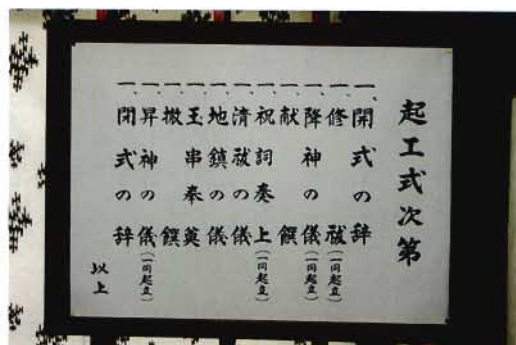 起工式次第
一、開式の辞
一、修祓(一同起立)
一、降神の儀(一同起立)
一、献饌
一、祝詞奏上(一同起立)
一、清祓の儀
一、地鎮の儀
一、玉串奉奠
一、撤饌
一、昇神の儀(一同起立)
一、閉式の辞
以上